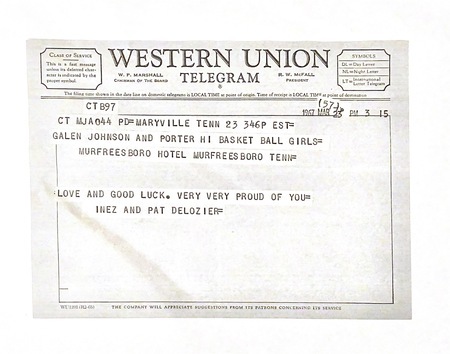 CLASS OF SERVICE
This is a fast message unless its deferred character is indicated by the proper symbol.
WESTERN UNION
TELEGRAM
W. P. MARSHALL
CHAIRMAN OF THE BOARD
R. W. McFALL
PRESIDENT
SYMBOLS
DL=Day Letter
NL=Night Letter
LT=International Letter Telegram
The filing time shown in the date line on domestic telegrams is LOCAL TIME at point of origin. Time of receipt is LOCAL TIME at point of destination
CTB97
(57)
CT MJA044 PD=MARYVILLE TENN 23 346P EST=
1967 MAR 23 PM 3 15
GALEN JOHNSON AND PORTER HI BASKET BALL GIRLS=
MURFREESBORO HOTEL MURFREESBORO TENN=
LOVE AND GOOD LUCK. VERY VERY PROUD OF YOU=
INEZ AND PAT DELOZIER=
THE COMPANY WILL APPRECIATE SUGGESTIONS FROM ITS PATRONS CONCERNING ITS SERVICE